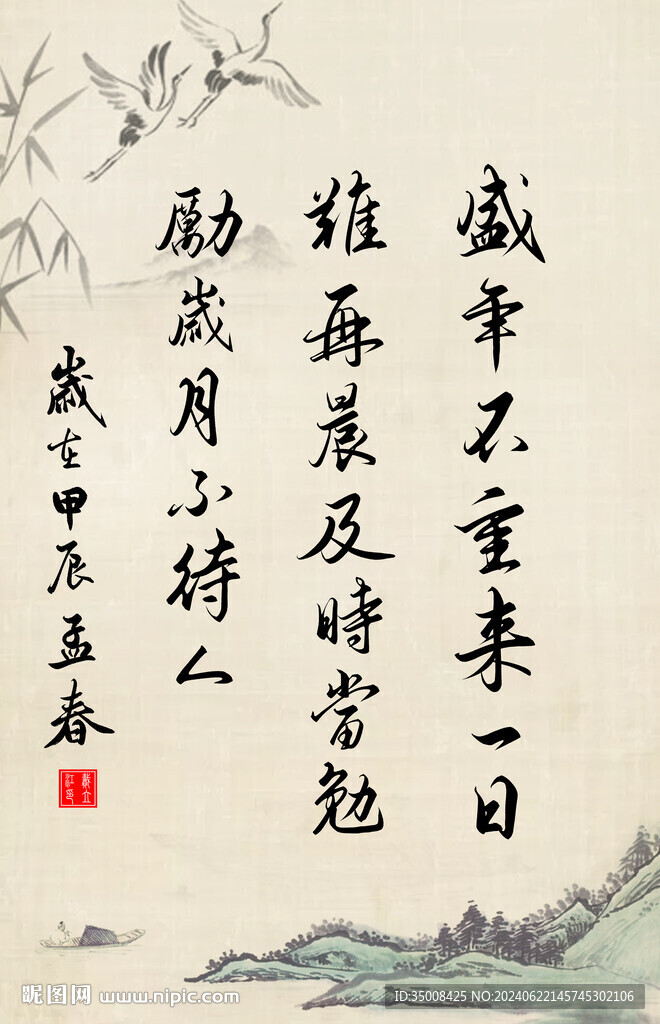 盛年不重来一日
難再晨及時當勉
勵歲月不待人
歲在甲辰孟春
昵图网 www.nipic.com
ID:35008425 NO:20240622145745302106